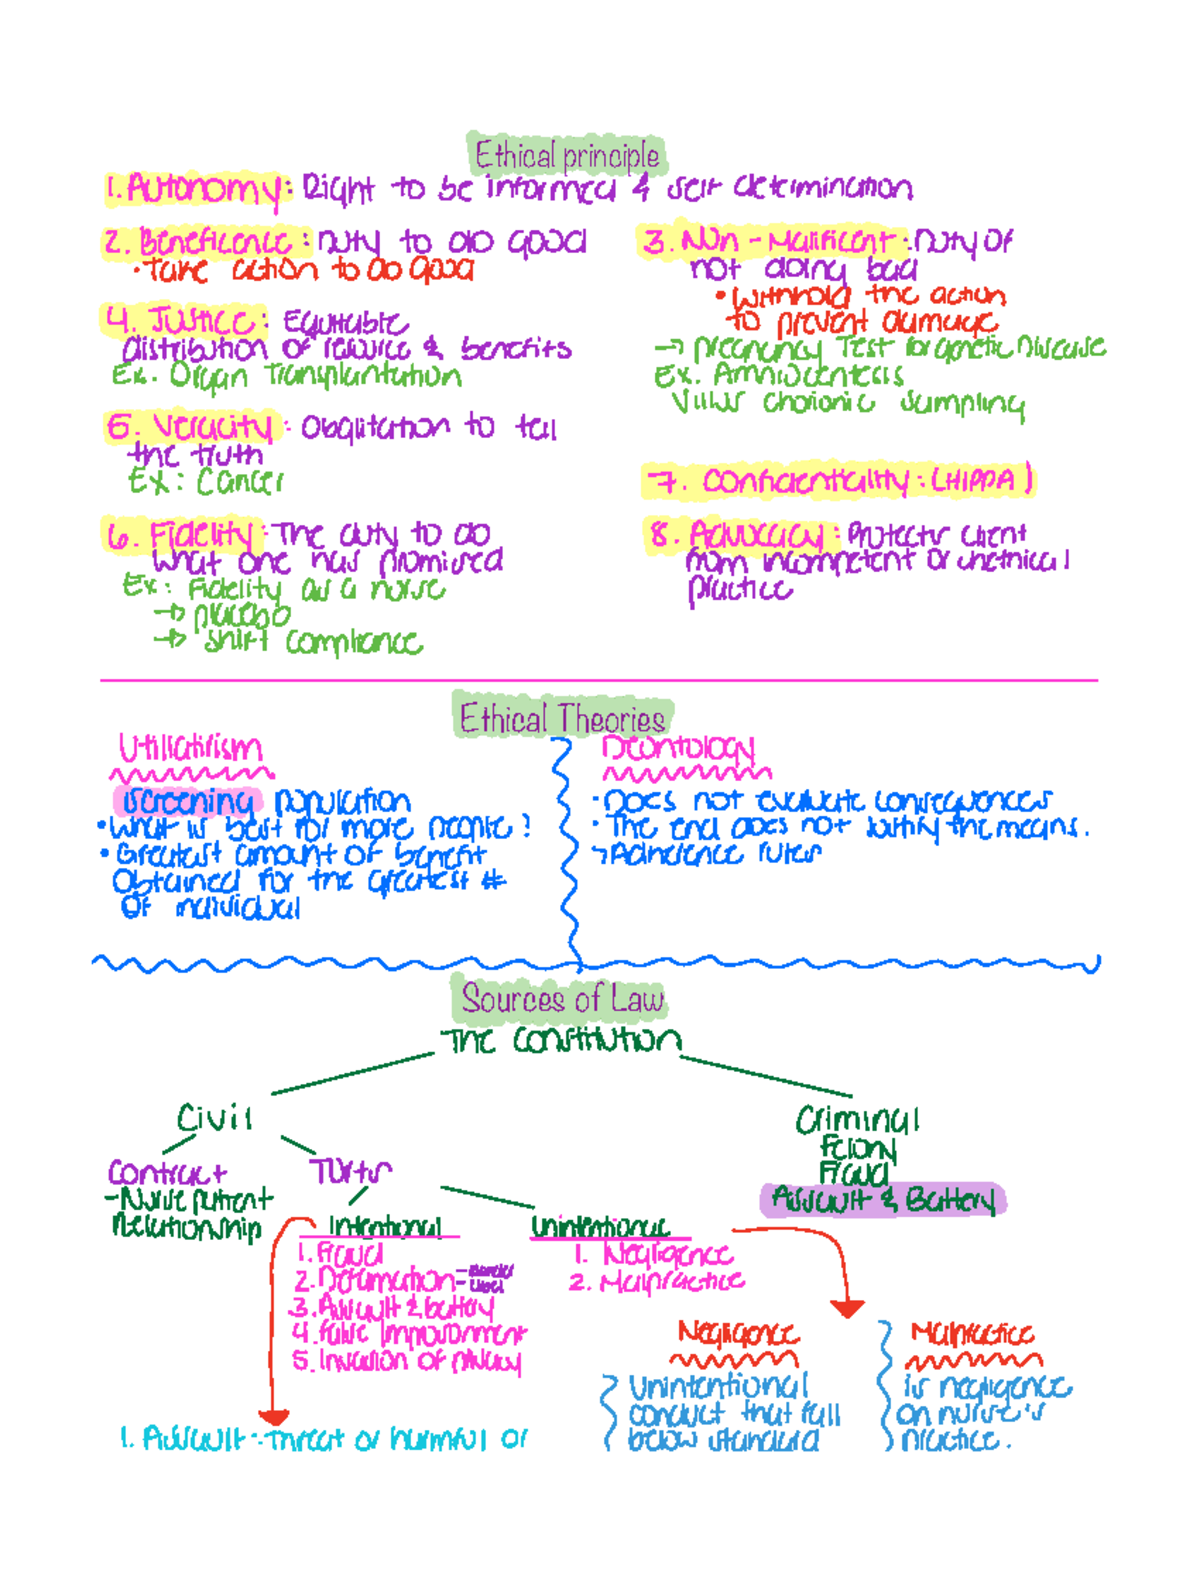 Ethical principle
1. Autonomy: Right to be informed & self determination
2. Beneficence: Duty to do good
• Take action to do good
3. Non-Malificent: Duty of
not doing bad
• Withhold the action
to prevent damage
→ pregnancy Test for genetic Disease
Ex. Amniocentesis
Villus chorionic sampling
4. Justice: Equitable
distribution of resource & benefits
Ex. Organ Transplantation
5. Veracity: Obglitation to tell
the truth
Ex: Cancer
6. Fidelity: The duty to do
what one has promised
Ex: Fidelity as a nurse
→ placebo
→ shift compliance
7. Confidentiality: (HIPPA)
8. Advocacy: Protects client
from incompetent or unethical
practice
Ethical Theories
Utillatirism
screening population
• What is best for more people?
• Greatest amount of benefit
Obtained for the greatest #
of individual
Deontology
• Does not evaluate consequences
• The end does not justify the means.
Adherence rules
Sources of Law
The Constitution
Civil
Contract
- Nurse patient
Relationship
Torts
Intentional
1. Fraud
2. Defamation - slander
- Libel
3. Assault & battery
4. False Imprisonment
5. Invasion of privacy
Unintentional
1. Negligence
2. Malpractice
Criminal
Felony
Fraud
Assault & Battery
Negligence
Unintentional
conduct that fall
below standard
Malpractice
is negligence
on nurse's
practice.
1. Assault: Threat of harmful or